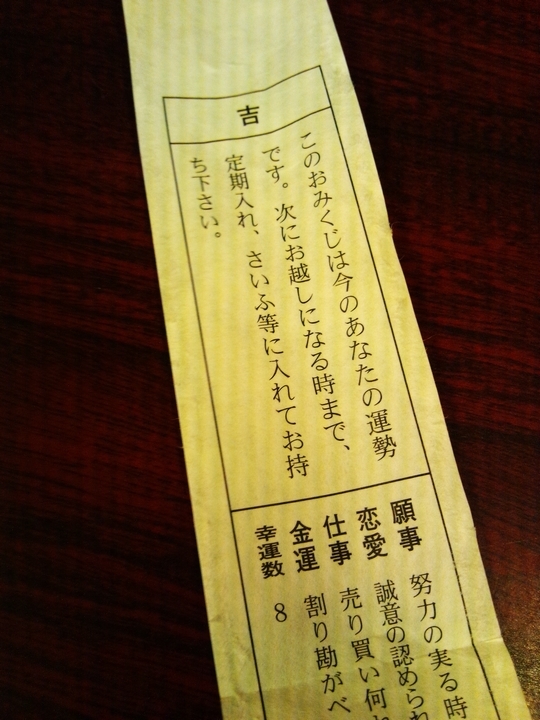 吉
このおみくじは今のあなたの運勢
です。次にお越しになる時まで、
定期入れ、さいふ等に入れてお持
ち下さい。
願事 努力の実る時
恋愛 誠意の認められ
仕事 売り買い何
金運 割り勘がべ
幸運数 8